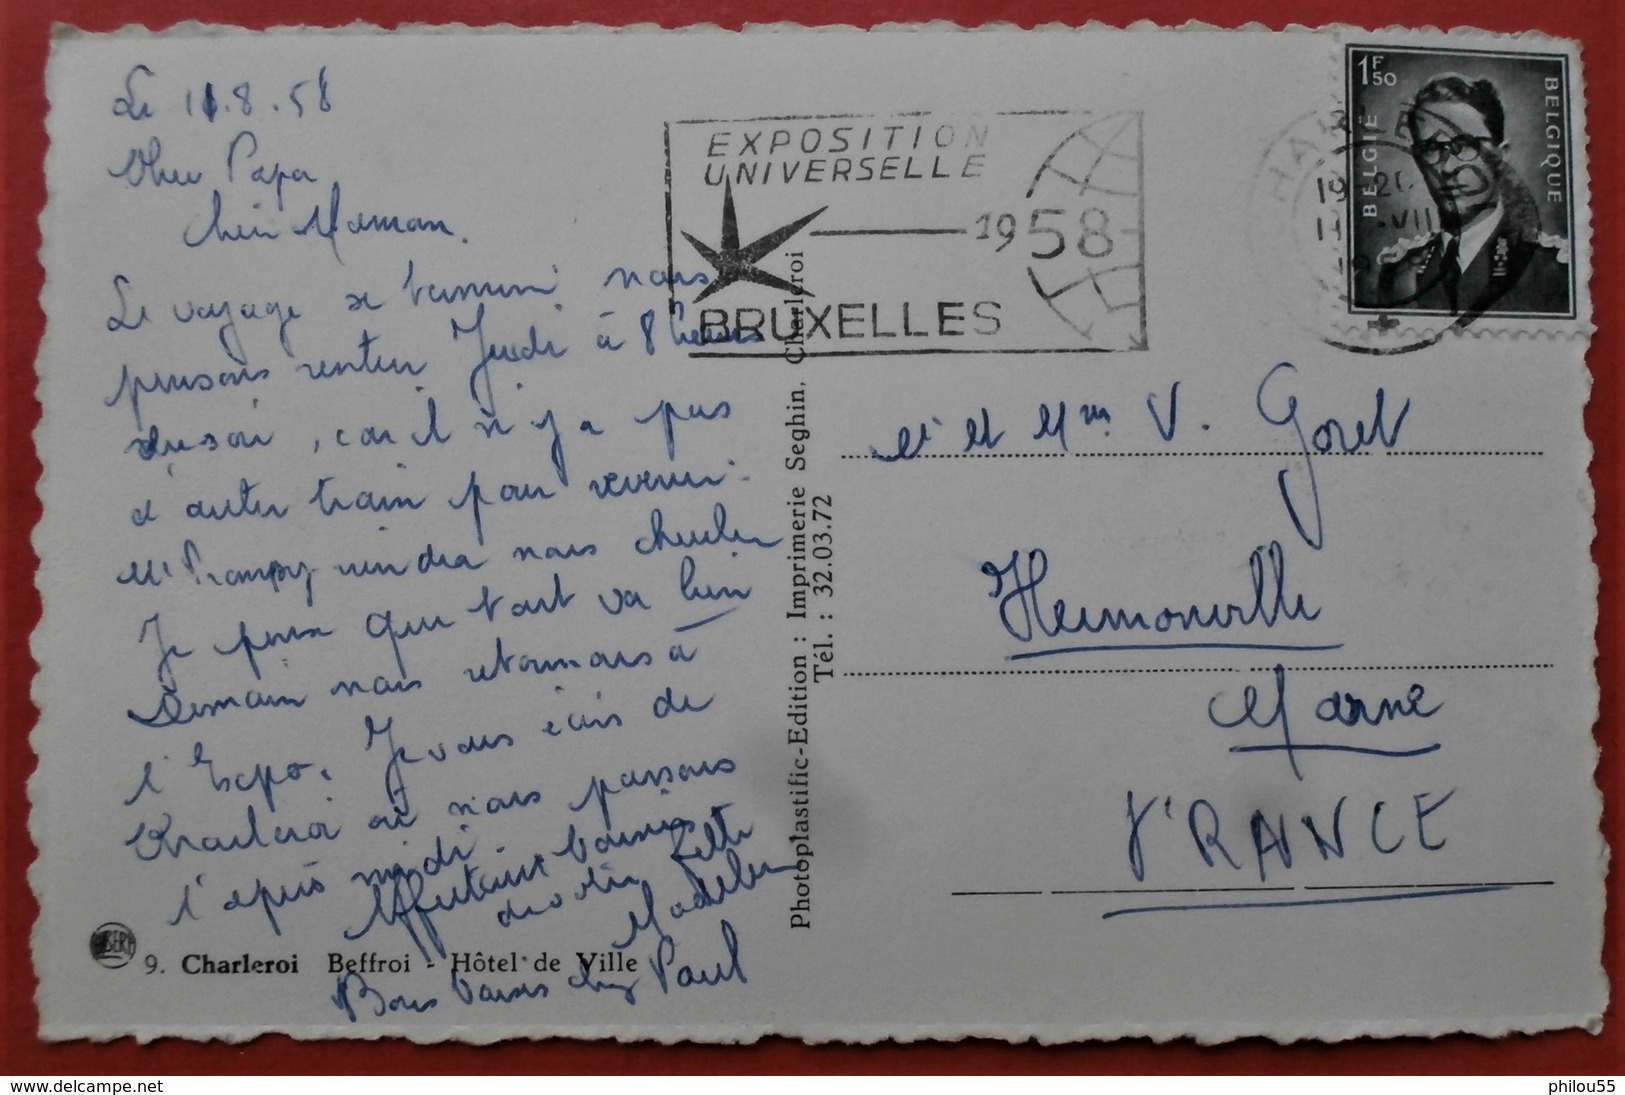 Le 11.8.58
Cher Papa
Chère Maman.
Le voyage se termine nous
pensons rentrer Jeudi à 8 heures
du soir, car il n'y a pas
d'autre train pour revenir.
Mr viendra nous chercher
Je pense que tout va bien
Demain nous retournons à
l'Expo. Je vous écris de
Charleroi où nous passons
l'après midi.
Affectueux baisers
de
Madeleine
Bons baisers chez Paul
9. Charleroi Beffroi - Hôtel de Ville
Photoplastific-Edition : Imprimerie Seghin, Charleroi
Tél. : 32.03.72
EXPOSITION
UNIVERSELLE
1958
BRUXELLES
1F50
BELGIE
BELGIQUE
CHARLEROI
Mr et Mme V. Goret
Hermonville
Marne
FRANCE
philou55